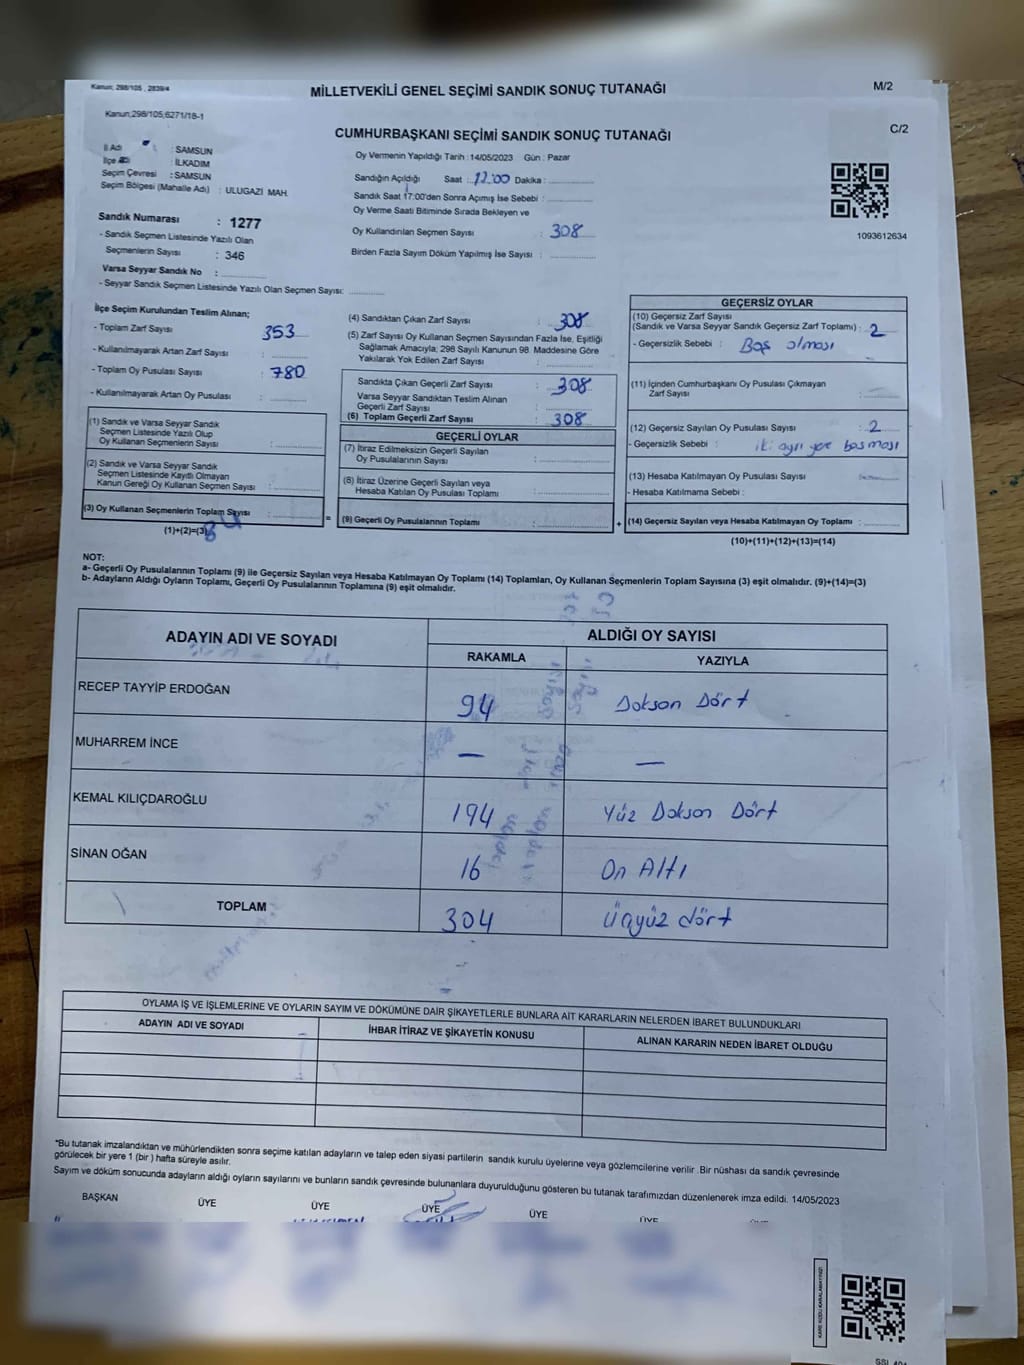 Kanun; 298/105, 2839/4
MİLLETVEKİLİ GENEL SEÇİMİ SANDIK SONUÇ TUTANAĞI
M/2
Kanun;298/105;6271/18-1
CUMHURBAŞKANI SEÇİMİ SANDIK SONUÇ TUTANAĞI
C/2
İl Adı : SAMSUN
İlçe Adı : İLKADIM
Seçim Çevresi : SAMSUN
Seçim Bölgesi (Mahalle Adı) : ULUGAZİ MAH.
Oy Vermenin Yapıldığı Tarih : 14/05/2023 Gün : Pazar
Sandığın Açıldığı Saat : 17:00 Dakika :
Sandık Saat 17:00'den Sonra Açımış İse Sebebi :
Oy Verme Saati Bitiminde Sırada Bekleyen ve
Oy Kullandırılan Seçmen Sayısı : 308
Birden Fazla Sayım Döküm Yapılmış İse Sayısı :
1093612634
Sandık Numarası : 1277
- Sandık Seçmen Listesinde Yazılı Olan
Seçmenlerin Sayısı : 346
Varsa Seyyar Sandık No :
- Seyyar Sandık Seçmen Listesinde Yazılı Olan Seçmen Sayısı:
İlçe Seçim Kurulundan Teslim Alınan;
- Toplam Zarf Sayısı : 353
- Kullanılmayarak Artan Zarf Sayısı :
- Toplam Oy Pusulası Sayısı : 780
- Kullanılmayarak Artan Oy Pusulası :
(1) Sandık ve Varsa Seyyar Sandık
Seçmen Listesinde Yazılı Olup
Oy Kullanan Seçmenlerin Sayısı :
(2) Sandık ve Varsa Seyyar Sandık
Seçmen Listesinde Kayıtlı Olmayan
Kanun Gereği Oy Kullanan Seçmen Sayısı :
(3) Oy Kullanan Seçmenlerin Toplam Sayısı :
(1)+(2)=(3)
(4) Sandıktan Çıkan Zarf Sayısı : 308
(5) Zarf Sayısı Oy Kullanan Seçmen Sayısından Fazla İse, Eşitliği
Sağlamak Amacıyla; 298 Sayılı Kanunun 98. Maddesine Göre
Yakılarak Yok Edilen Zarf Sayısı :
Sandıkta Çıkan Geçerli Zarf Sayısı : 308
Varsa Seyyar Sandıktan Teslim Alınan
Geçerli Zarf Sayısı :
(6) Toplam Geçerli Zarf Sayısı : 308
GEÇERLİ OYLAR
(7) İtiraz Edilmeksizin Geçerli Sayılan
Oy Pusulalarının Sayısı :
(8) İtiraz Üzerine Geçerli Sayılan veya
Hesaba Katılan Oy Pusulası Toplamı :
= (9) Geçerli Oy Pusulalarının Toplamı :
GEÇERSİZ OYLAR
(10) Geçersiz Zarf Sayısı
(Sandık ve Varsa Seyyar Sandık Geçersiz Zarf Toplamı) : 2
- Geçersizlik Sebebi : Boş olması
(11) İçinden Cumhurbaşkanı Oy Pusulası Çıkmayan
Zarf Sayısı :
(12) Geçersiz Sayılan Oy Pusulası Sayısı : 2
- Geçersizlik Sebebi : iki ayrı yere basması
(13) Hesaba Katılmayan Oy Pusulası Sayısı :
- Hesaba Katılmama Sebebi :
+ (14) Geçersiz Sayılan veya Hesaba Katılmayan Oy Toplamı :
(10)+(11)+(12)+(13)=(14)
NOT:
a- Geçerli Oy Pusulalarının Toplamı (9) ile Geçersiz Sayılan veya Hesaba Katılmayan Oy Toplamı (14) Toplamları, Oy Kullanan Seçmenlerin Toplam Sayısına (3) eşit olmalıdır. (9)+(14)=(3)
b- Adayların Aldığı Oyların Toplamı, Geçerli Oy Pusulalarının Toplamına (9) eşit olmalıdır.
ADAYIN ADI VE SOYADI
ALDIĞI OY SAYISI
RAKAMLA YAZIYLA
RECEP TAYYİP ERDOĞAN 94 Dokson Dört
MUHARREM İNCE — —
KEMAL KILIÇDAROĞLU 194 Yüz Dokson Dört
SİNAN OĞAN 16 On Altı
TOPLAM 304 Üçyüz dört
OYLAMA İŞ VE İŞLEMLERİNE VE OYLARIN SAYIM VE DÖKÜMÜNE DAİR ŞİKAYETLERLE BUNLARA AİT KARARLARIN NELERDEN İBARET BULUNDUKLARI
ADAYIN ADI VE SOYADI İHBAR İTİRAZ VE ŞİKAYETİN KONUSU ALINAN KARARIN NEDEN İBARET OLDUĞU
*Bu tutanak imzalandıktan ve mühürlendikten sonra seçime katılan adayların ve talep eden siyasi partilerin sandık kurulu üyelerine veya gözlemcilerine verilir. Bir nüshası da sandık çevresinde
görülecek bir yere 1 (bir) hafta süreyle asılır.
Sayım ve döküm sonucunda adayların aldığı oyların sayılarını ve bunların sandık çevresinde bulunanlara duyurulduğunu gösteren bu tutanak tarafımızdan düzenlenerek imza edildi. 14/05/2023
BAŞKAN ÜYE ÜYE ÜYE ÜYE ÜYE